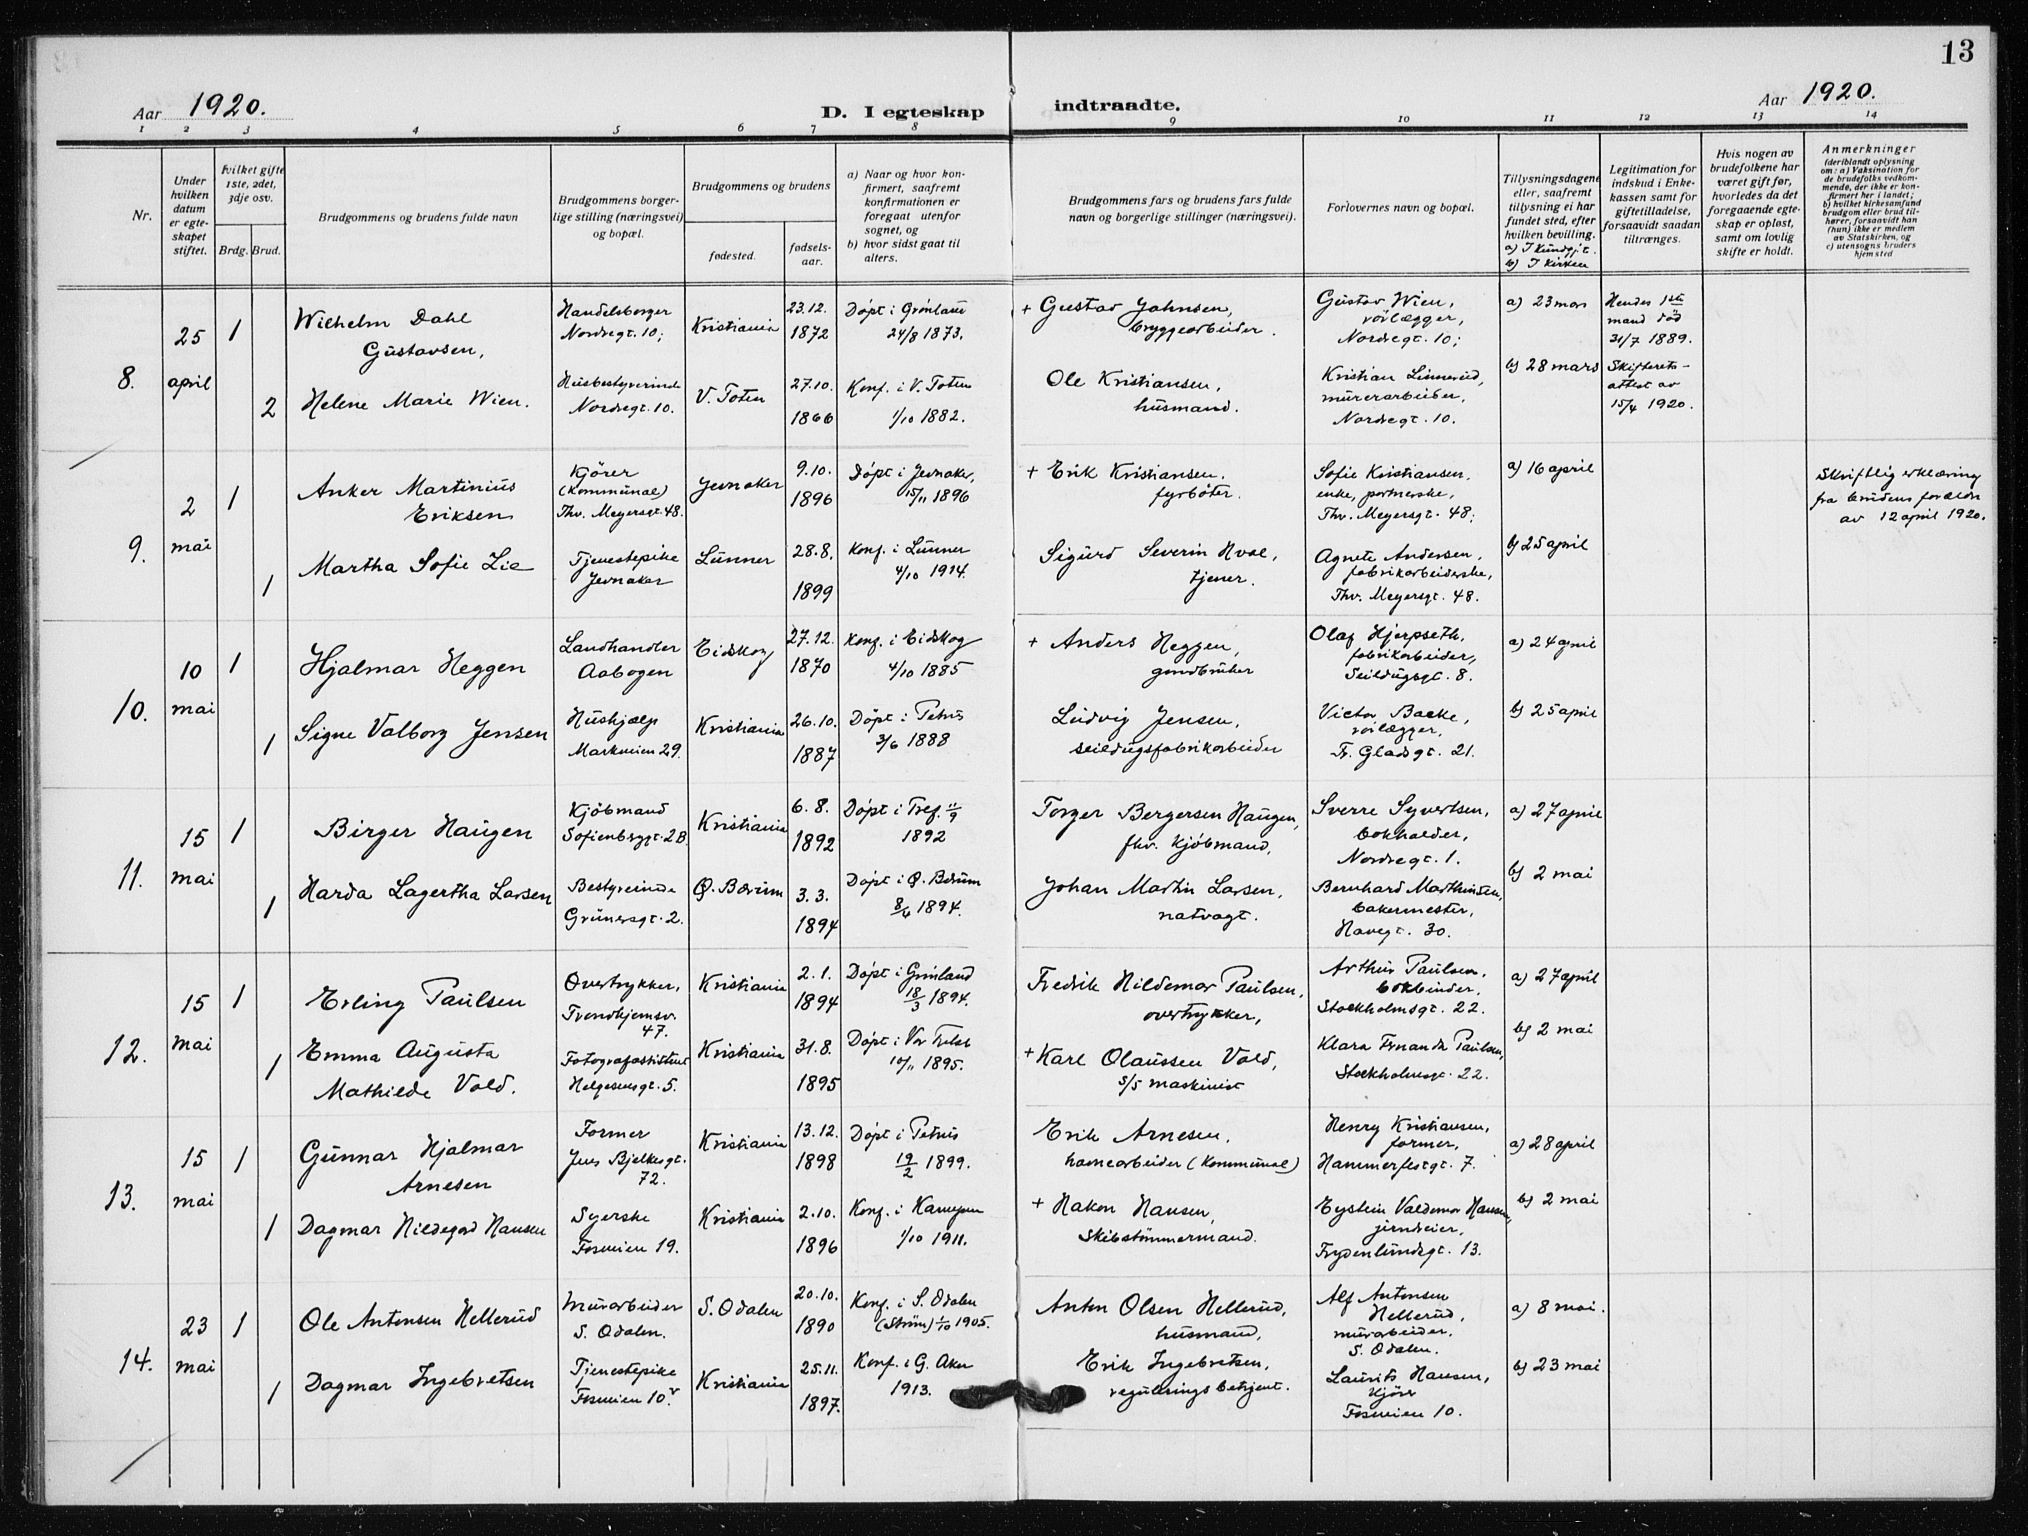 13
Aar 1920.
D. I egteskap indtraadte.
Aar 1920.
1 2 3 4 5 6 7 8 9 10 11 12 13 14
Nr.
Under hvilken datum er egteskapet stiftet.
Hvilket gifte 1ste, 2det, 3dje osv.
Brdg. Brud.
Brudgommens og brudens fulde navn
Brudgommens borgerlige stilling (næringsvei) og bopæl.
Brudgommens og brudens
fødested.
fødselsaar.
a) Naar og hvor konfirmert, saafremt konfirmationen er foregaat utenfor sognet, og
b) hvor sidst gaat til alters.
Brudgommens fars og brudens fars fulde navn og borgerlige stillinger (næringsvei).
Forlovernes navn og bopæl.
Tillysningsdagene eller, saafremt tillysning ei har fundet sted, efter hvilken bevilling.
a) I Kundgjt.
b) I Kirken
Legitimation for indskud i Enkekassen samt for giftetilladelse, forsaavidt saadan tiltrænges.
Hvis nogen av brudefolkene har været gift før, hvorledes da det foregaaende egteskap er opløst, samt om lovlig skifte er holdt.
Anmerkninger
(deriblandt oplysning om: a) Vaksination for de brudefolks vedkommende, der ikke er konfirmert her i landet;
b) hvilket kirkesamfund brudgom eller brud tilhører, forsaavidt han (hun) ikke er medlem av Statskirken, og
c) utensogns bruders hjemsted
8.
25 april
1
Wilhelm Dahl
Gustavsen,
Handelsborger
Nordregt. 10;
Kristiania
23.12.
1872
Døpt i Grønland
24/8 1873.
+ Gustav Johnsen,
bryggearbeider.
Gustav Wien,
rörlægger,
Nordregt. 10;
a) 23 mars
Hendes 1ste
mand död
31/7 1889.
2
Helene Marie Wien.
Husbestyrerinde
Nordregt. 10.
V. Toten
27.10.
1866
Konf. i V. Toten
1/10 1882.
Ole Kristiansen,
husmand.
Kristian Linnerud,
murerarbeider,
Nordregt. 10.
b) 28 mars
Skifterets-
attest av
15/4 1920.
9.
2 mai
1
Anker Martinius
Eriksen
Kjörer
(Kommunal)
Thv. Meyersgt. 48.
Jevnaker
9.10.
1896
Döpt i Jevnaker,
15/11 1896
+ Erik Kristiansen,
fyrböter.
Sofie Kristiansen,
enke, portnerske,
Thv. Meyersgt. 48;
a) 16 april
Skriftlig erklæring
fra brudens forældre
av 12 april 1920.
1
Martha Sofie Lie
Tjenestepike
Jevnaker
Lunner
28.8.
1899
Konf. i Lunner
4/10 1914.
Sigurd Severin Hval,
tjener.
Agnete Andersen,
fabrikarbeiderske,
Thv. Meyersgt. 48.
b) 25 april
10.
10 mai
1
Hjalmar Heggen
Landhandler
Aabogen
Eidskog
27.12.
1870
Konf. i Eidskog
4/10 1885
+ Anders Heggen,
gaardbruker
Olaf Hjerpseth,
fabrikarbeider,
Seildugsgt. 8.
a) 24 april
1
Signe Valborg Jensen
Hushjælp
Markveien 29.
Kristiania
26.10.
1887
Döpt i Petrus
3/6 1888
Ludvig Jensen,
seildugsfabrikarbeider
Victor Backe,
rörlægger,
Fr. Gladsgt. 21.
b) 25 april
11.
15 mai
1
Birger Haugen
Kjöbmand
Sofienbrggt. 2 B.
Kristiania
6.8.
1892
Döpt i Tref. 11/9
1892
Torger Bergersen Haugen,
fhv. Kjöbmand,
Sverre Syvertsen,
bokholder,
Nordregt. 1.
a) 27 april
1
Harda Lagertha Larsen
Bestyrerinde
Grünersgt. 2.
Ø. Bærum
3.3.
1894
Döpt i Ø. Bærum
8/6 1894.
Johan Martin Larsen,
natvagt.
Bernhard Marthinsen,
bakermester,
Havegt. 30.
b) 2 mai
12.
15 mai
1
Erling Paulsen
Overtrykker,
Trondhjemsv.
47.
Kristiania
2.1.
1894
Döpt i Grönland
18/3 1894.
Fredrik Hildemar Paulsen,
overtrykker,
Arthur Paulsen,
bokbinder,
Stockholmsgt. 22.
a) 27 april
1
Emma Augusta
Mathilde Vold.
Fotografassistent
Helgesensgt. 5.
Kristiania
31.8.
1895
Döpt i Vor Frelser
10/11 1895.
+ Karl Olaussen Vold,
S/S maskinist
Klara Fernanda Paulsen,
Stockholmsgt. 22.
b) 2 mai
13.
15 mai
1
Gunnar Hjalmar
Arnesen
Former
Jens Bjelkesgt.
72.
Kristiania
13.12.
1898
Döpt i Petrus
19/2 1899.
Erik Arnesen,
havnearbeider (Kommunal)
Henry Kristiansen,
former,
Hammerfestgt. 7.
a) 28 april
1
Dagmar Hildegard Hansen
Syerske
Fossveien 19.
Kristiania
2.10.
1896
Konf. i Kampen
1/10 1911.
+ Hakon Hansen,
Skibstömmermand.
Eystein Valdemar Hansen,
jerndreier,
Frydenlundsgt. 13.
b) 2 mai
14.
23 mai
1
Ole Antonsen Hellerud
Murarbeider
S. Odalen.
S. Odalen
20.10.
1890
Konf. i S. Odalen
(Ström) 1/10 1905.
Anton Olsen Hellerud,
husmand,
Alf Antonsen
Hellerud,
murarbeider,
S. Odalen.
a) 8 mai.
1
Dagmar Ingebretsen
Tjenestepike
Fossveien 10
Kristiania
25.11.
1897.
Konf. i G. Aker
1913.
Erik Ingebretsen,
reguleringsbetjent.
Laurits Hansen,
Kjörer
Fossveien 10.
b) 23 mai